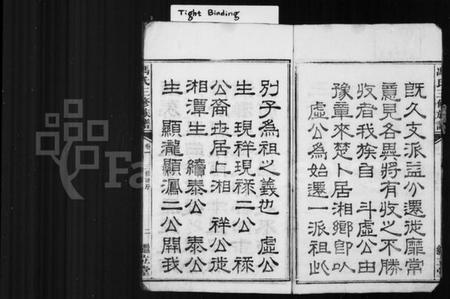 Tight Binding
既久支派益分遷徙靡常
意見各異將有收之不勝
收者我族自 斗虛公由
豫章來楚卜居湘鄉卽以
虛公為始遷一派祖此
別子為祖之義也 虛公
生 現祥現祿二公 祿
公裔世居上湘 祥公徙
湘潭生 續泰公 泰公
生 顯龍顯鳳二公開我